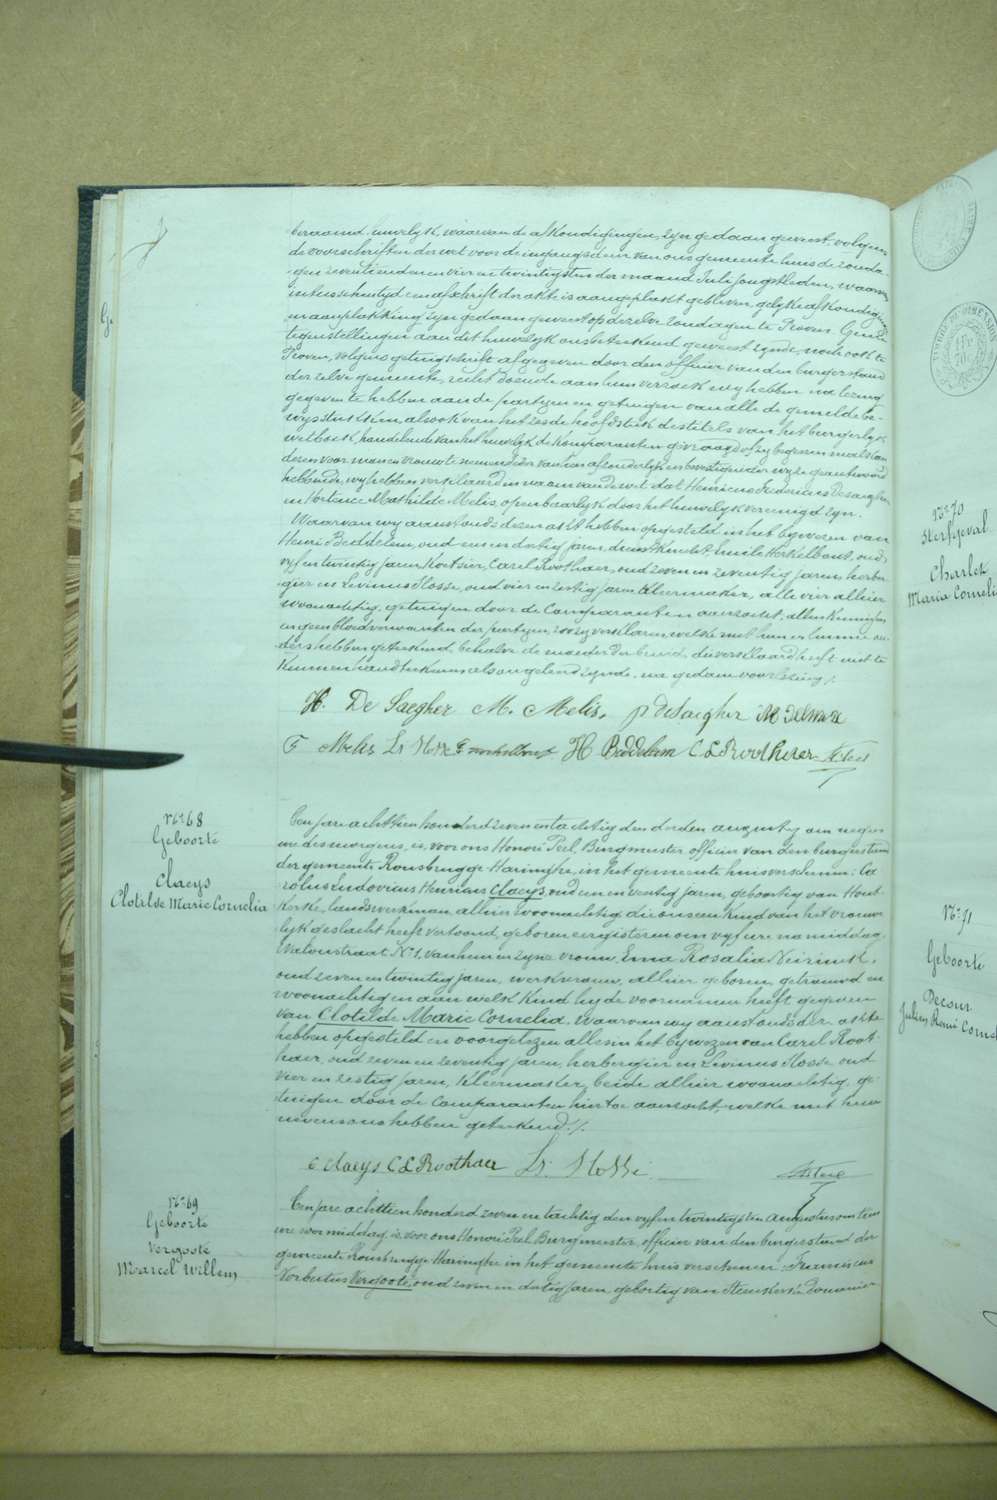 beraamd huwelyk, waarvan de afkondigingen zyn gedaan geweest volgens
de voorschriften der wet voor de ingangsdeur van ons gemeente huis de zonda-
gen zeventienden en vier en twintigsten der maand Juli jongstleden, waarvan
intusschentyd een afschrift der akte is aangeplakt gebleven, gelyke afkondigingen
en aanplakking zyn gedaan geweest op dezelve zondagen te Proven. Geene
tegenstellingen aan dit huwelyk ons beteekend geweest zynde, noch ook te
Proven, volgens getuigschrift afgegeven door den officier van den burgerstand
der zelve gemeente, recht doende aan hun verzoek wy hebben na lezing
gegeven te hebben aan de partyen en getuigen van alle de gemelde be-
wysstukken, alsook van het zesde hoofdstuk des titels van het burgerlyk
wetboek, handelende van het huwelyk, de komparanten gevraagd of zy begeeren malkan
deren voor man en vrouw te nemen, ieder van hun afzonderlyk en bevestigender wyze geantwoord
hebbende, wy hebben verklaard in naam van de wet dat Henricus Fredericus Desaegher
en Hortence Mathilde Melis, openbaarlyk door het huwelyk vereenigd zyn.
Waarvan wy aanstonds dezen akt hebben opgesteld in het bywezen van
Henri Beddelem, oud een en dertig jaren, dienstknecht, Emile Kerkelbout, oud
vyf en twintig jaren Koetsier, Carel Roothaer, oud zeven en zeventig jaren, herber
gier en Livinus Slosse, oud vier en zestig jaren Kleermaker, alle vier alhier
woonachtig, getuigen door de Comparanten aanzocht, allen kennissen
en geen bloedverwanten der partyen, zoo zy verklaren, welke met hun en binnen on-
ders hebben geteekend, behalve de moeder der bruid, die verklaard heeft niet te
kunnen handteekenen als ongeleerd zynde, na gedane voorlezing /.
H. De Saegher M. Melis. p deSaegher
F Melis Ls Slosse H Beddelem C L Roothaer APeel
No 68
Geboorte
Claeys
Clotilde Marie Cornelia
Een jare achttien honderd zeven en tachtig den derden augusty om negen
ure des morgens, is, voor ons Honoré Peel, Burgmeester officier van den burgerstand
der gemeente Rousbrugge Haringhe, in het gemeente huis verschenen: Ca
rolus Ludovicus Henricus Claeys, oud een en veertig jaren, geboortig van Hout-
kerke, landswerkman, alhier woonachtig die ons een kind van het vrouwe
lyk geslacht heeft vertoond, geboren eergisteren om vyf ure namiddag
Watoustraat No 1, van hem en zyne vrouw, Ema Rosalia Neirinck,
oud zeven en twintig jaren, werkvrouw, alhier geboren, getrouwd en
woonachtig en aan welk kind hy de voornamen heeft gegeven
van Clotilde Marie Cornelia. Waarvan wy aanstonds der akte
hebben opgesteld en voorgelezen alles in het bywezen van Carel Root-
haer, oud zeven en zeventig jaren, herbergier en Livinus Slosse oud
vier en zestig jaren, Kleermaker, beide alhier woonachtig, ge-
tuigen door de Comparanten hiertoe aanzocht, welke met hem
nevens ons hebben geteekend /.
C Claeys C L Roothaer Ls. Slosse. APeel
No 69
Geboorte
Vergoote
Marcel Willem
Een jare achttien honderd zeven en tachtig den vyf en twintigsten Augustus om tien
ure voormiddag, is voor ons Honoré Peel Burgmeester, officier van den burgerstand der
gemeente Rousbrugge Haringhe in het gemeente huis verschenen: Franciscus
Norbertus Vergoote, oud zeven en dertig jaren geboortig van Steenkerke Douanier
No 70
Sterfgeval
Charlet
Maria Corneli
No 71
Geboorte
Decour
Julien René Corne